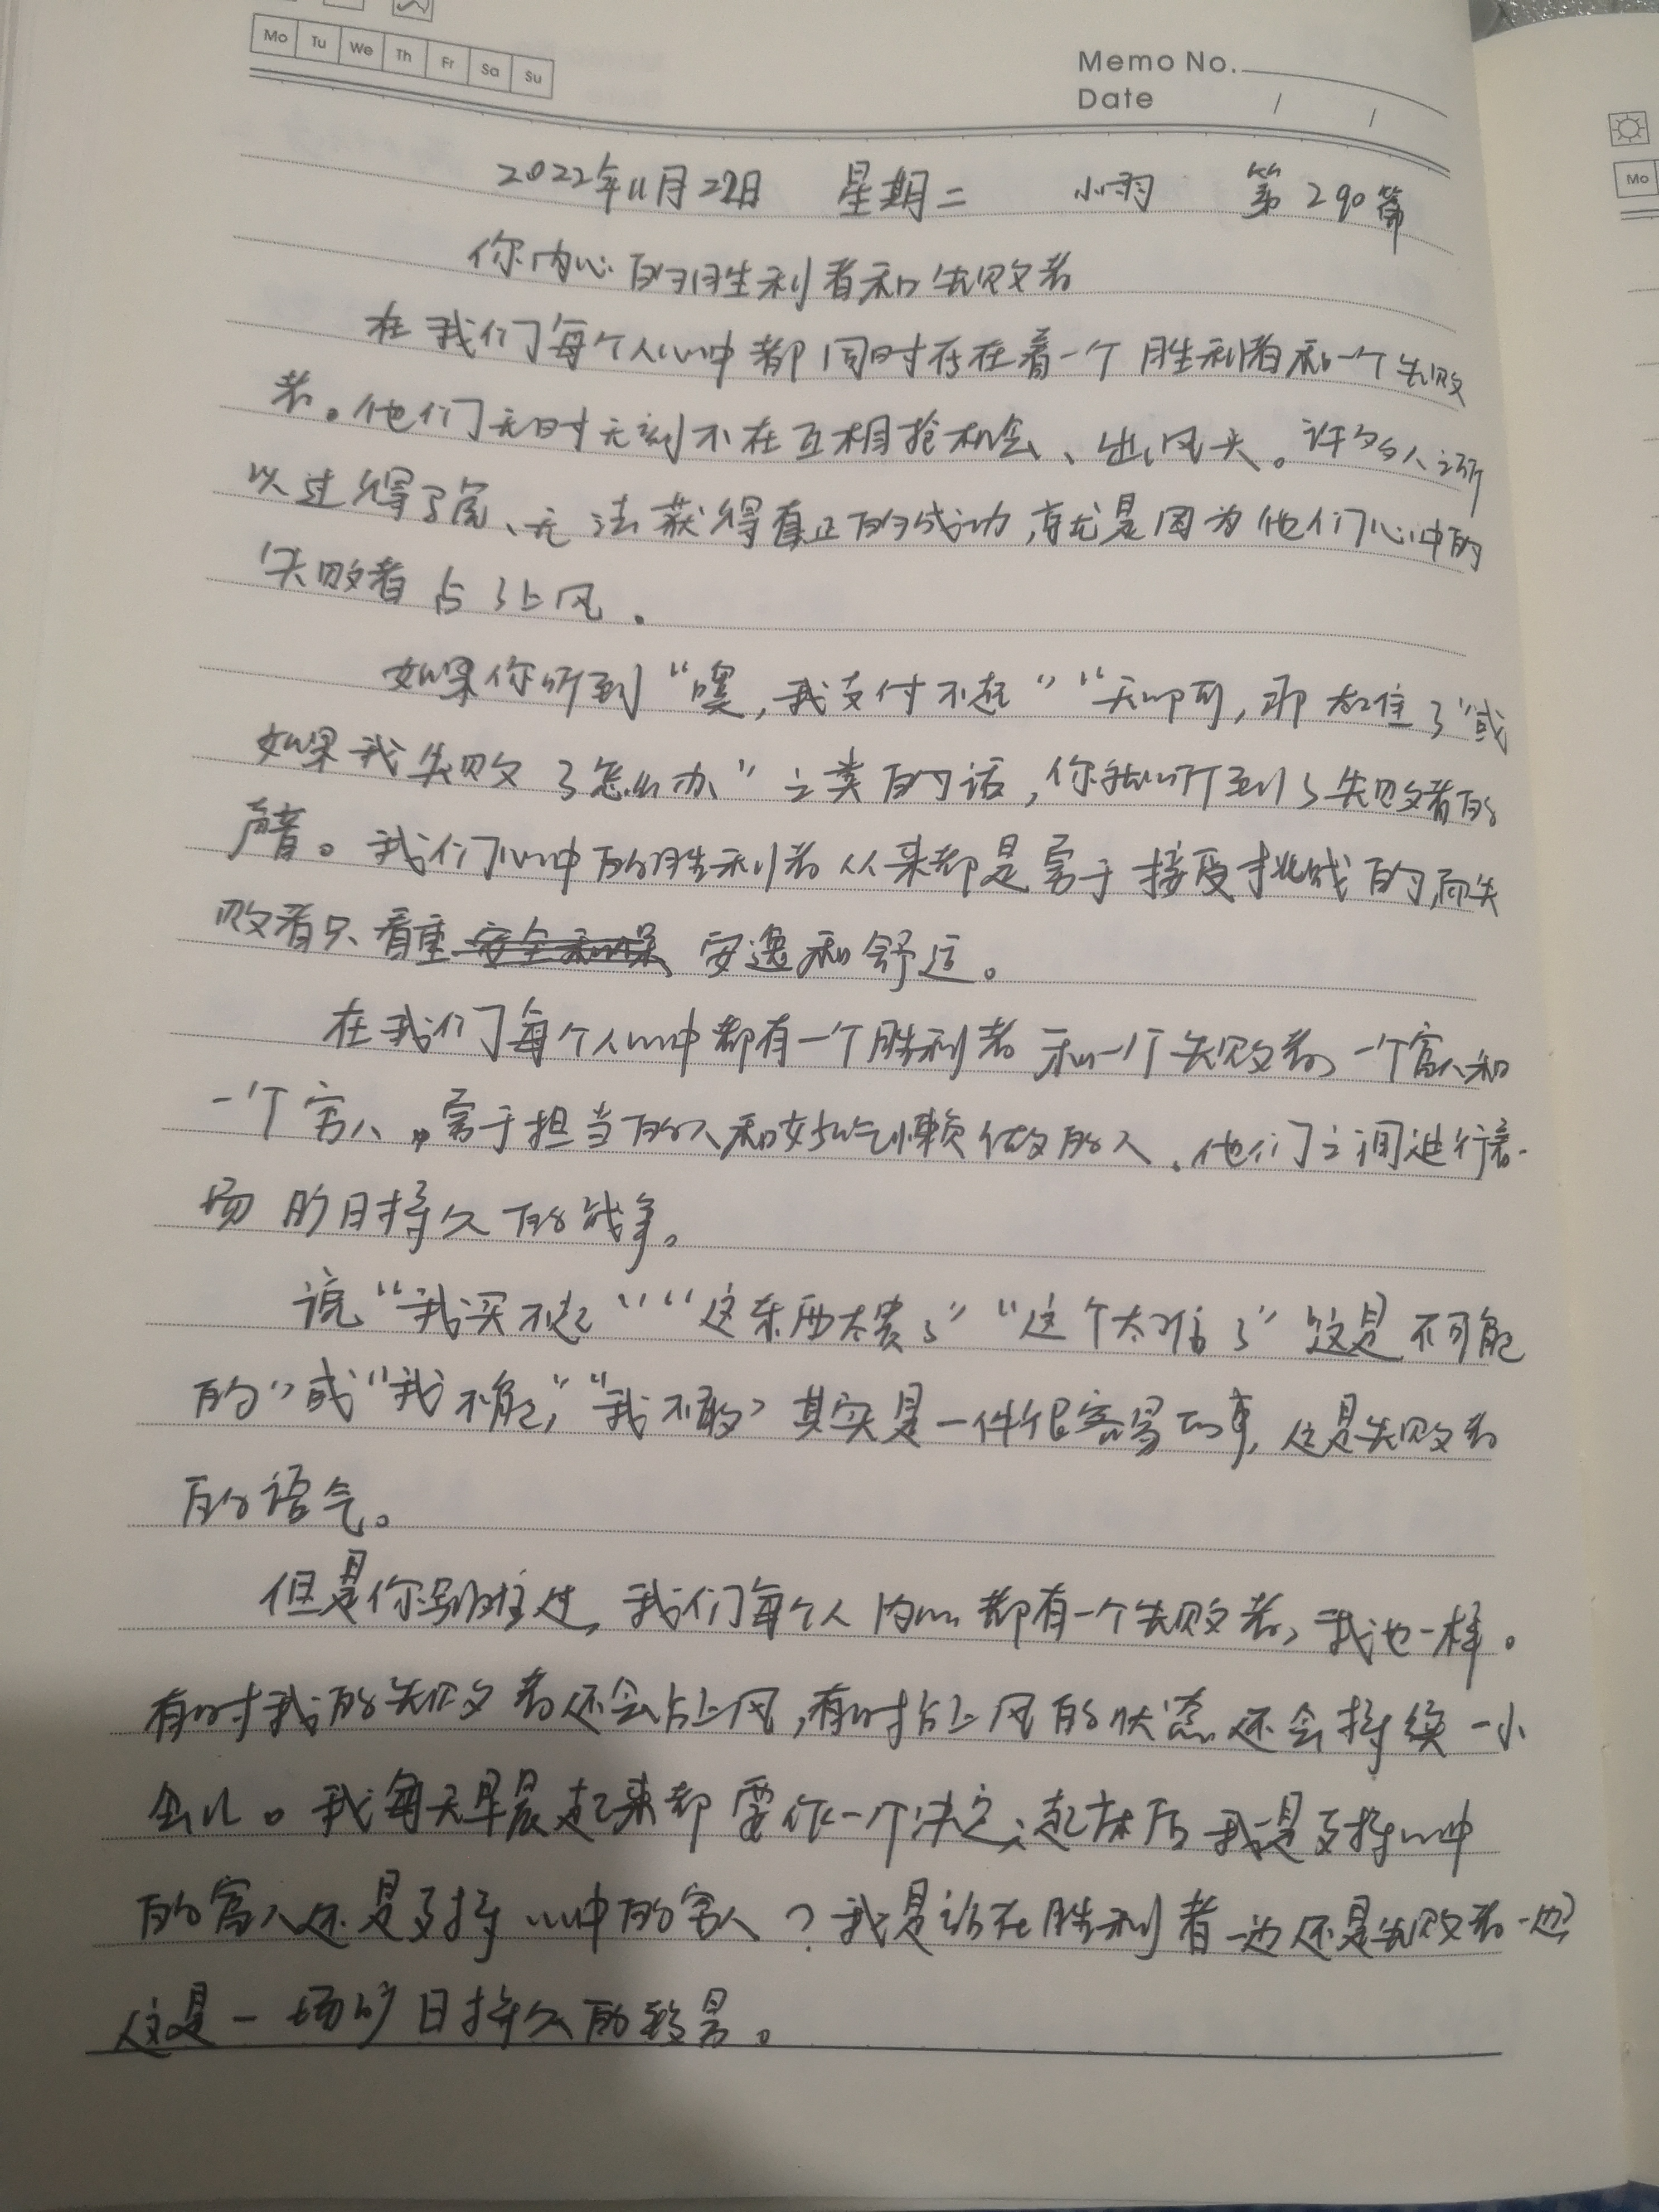 Mo Tu We Th Fr Sa Su
Memo No.
Date / /
Mo
2022年11月22日 星期二 小雨 第290篇
你内心的胜利者和失败者
在我们每个人心中都同时存在着一个胜利者和一个失败
者。他们无时无刻不在互相抢机会、出风头。许多人之所
以过得了 、无法获得真正的成功,就是因为他们心中的
失败者占了上风.
如果你听到“噢,我支付不起”“天啊,那太 了”或
如果我失败了怎么办”之类的话,你就听到了失败者的
声音。我们心中的胜利者从来都是勇于接受挑战的,而失
败者只看重 安逸和舒适。
在我们每个人心中都有一个胜利者和一个失败者、一个富人和
一个穷人,勇于担当的人和好吃懒做的人.他们之间进行着一
场旷日持久的战争。
说“我买不起”“这东西太贵了”“这个太难了”“这是不可能
的”或“我不能”“我不敢”其实是一件很容易的事,这是失败者
的语气。
但是你别难过,我们每个人内心都有一个失败者,我也一样。
有时我的失败者还会占上风,有时占上风的状态还会持续一小
会儿。我每天早晨起来都要作一个决定:起床后我是支持心中
的富人还是支持心中的穷人?我是站在胜利者一边还是失败者一边?
这是一场旷日持久的较量。